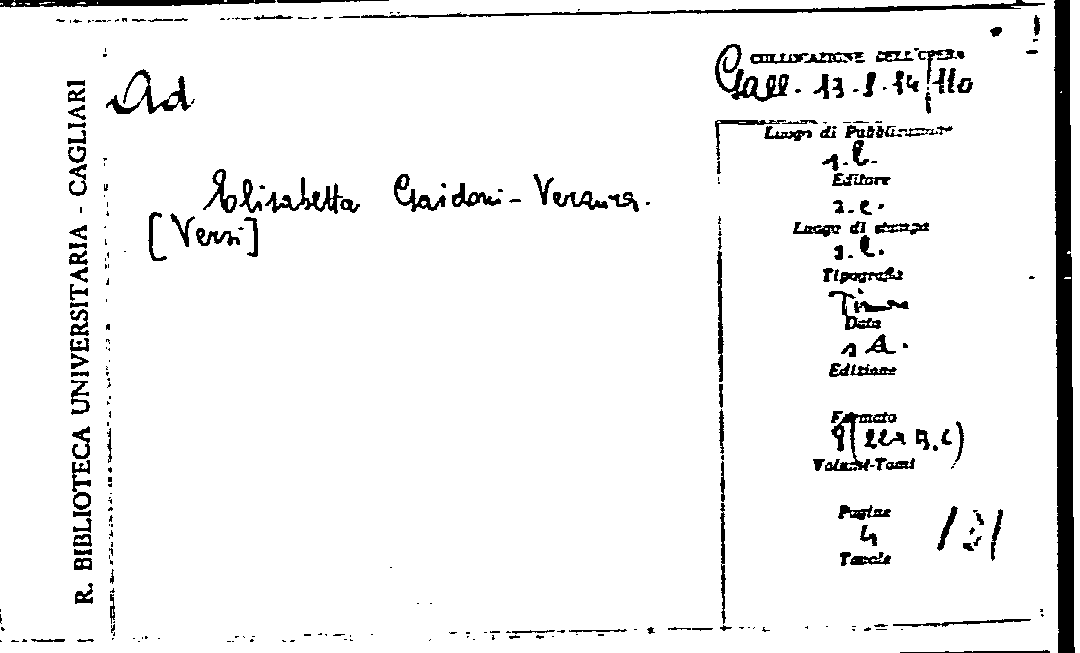 R. BIBLIOTECA UNIVERSITARIA - CAGLIARI
Ad
Elisabetta Gaidoni-Vergura.
[Versi]
COLLOCAZIONE DELL'OPERA
Gall. 13.8.14/110
Luogo di Pubblicazione
s.l.
Editore
s.e.
Luogo di stampa
s.l.
Tipografia
Timon
Data
s.a.
Edizione
Formato
8
Volumi-Tomi
Pagine
4
Tavole